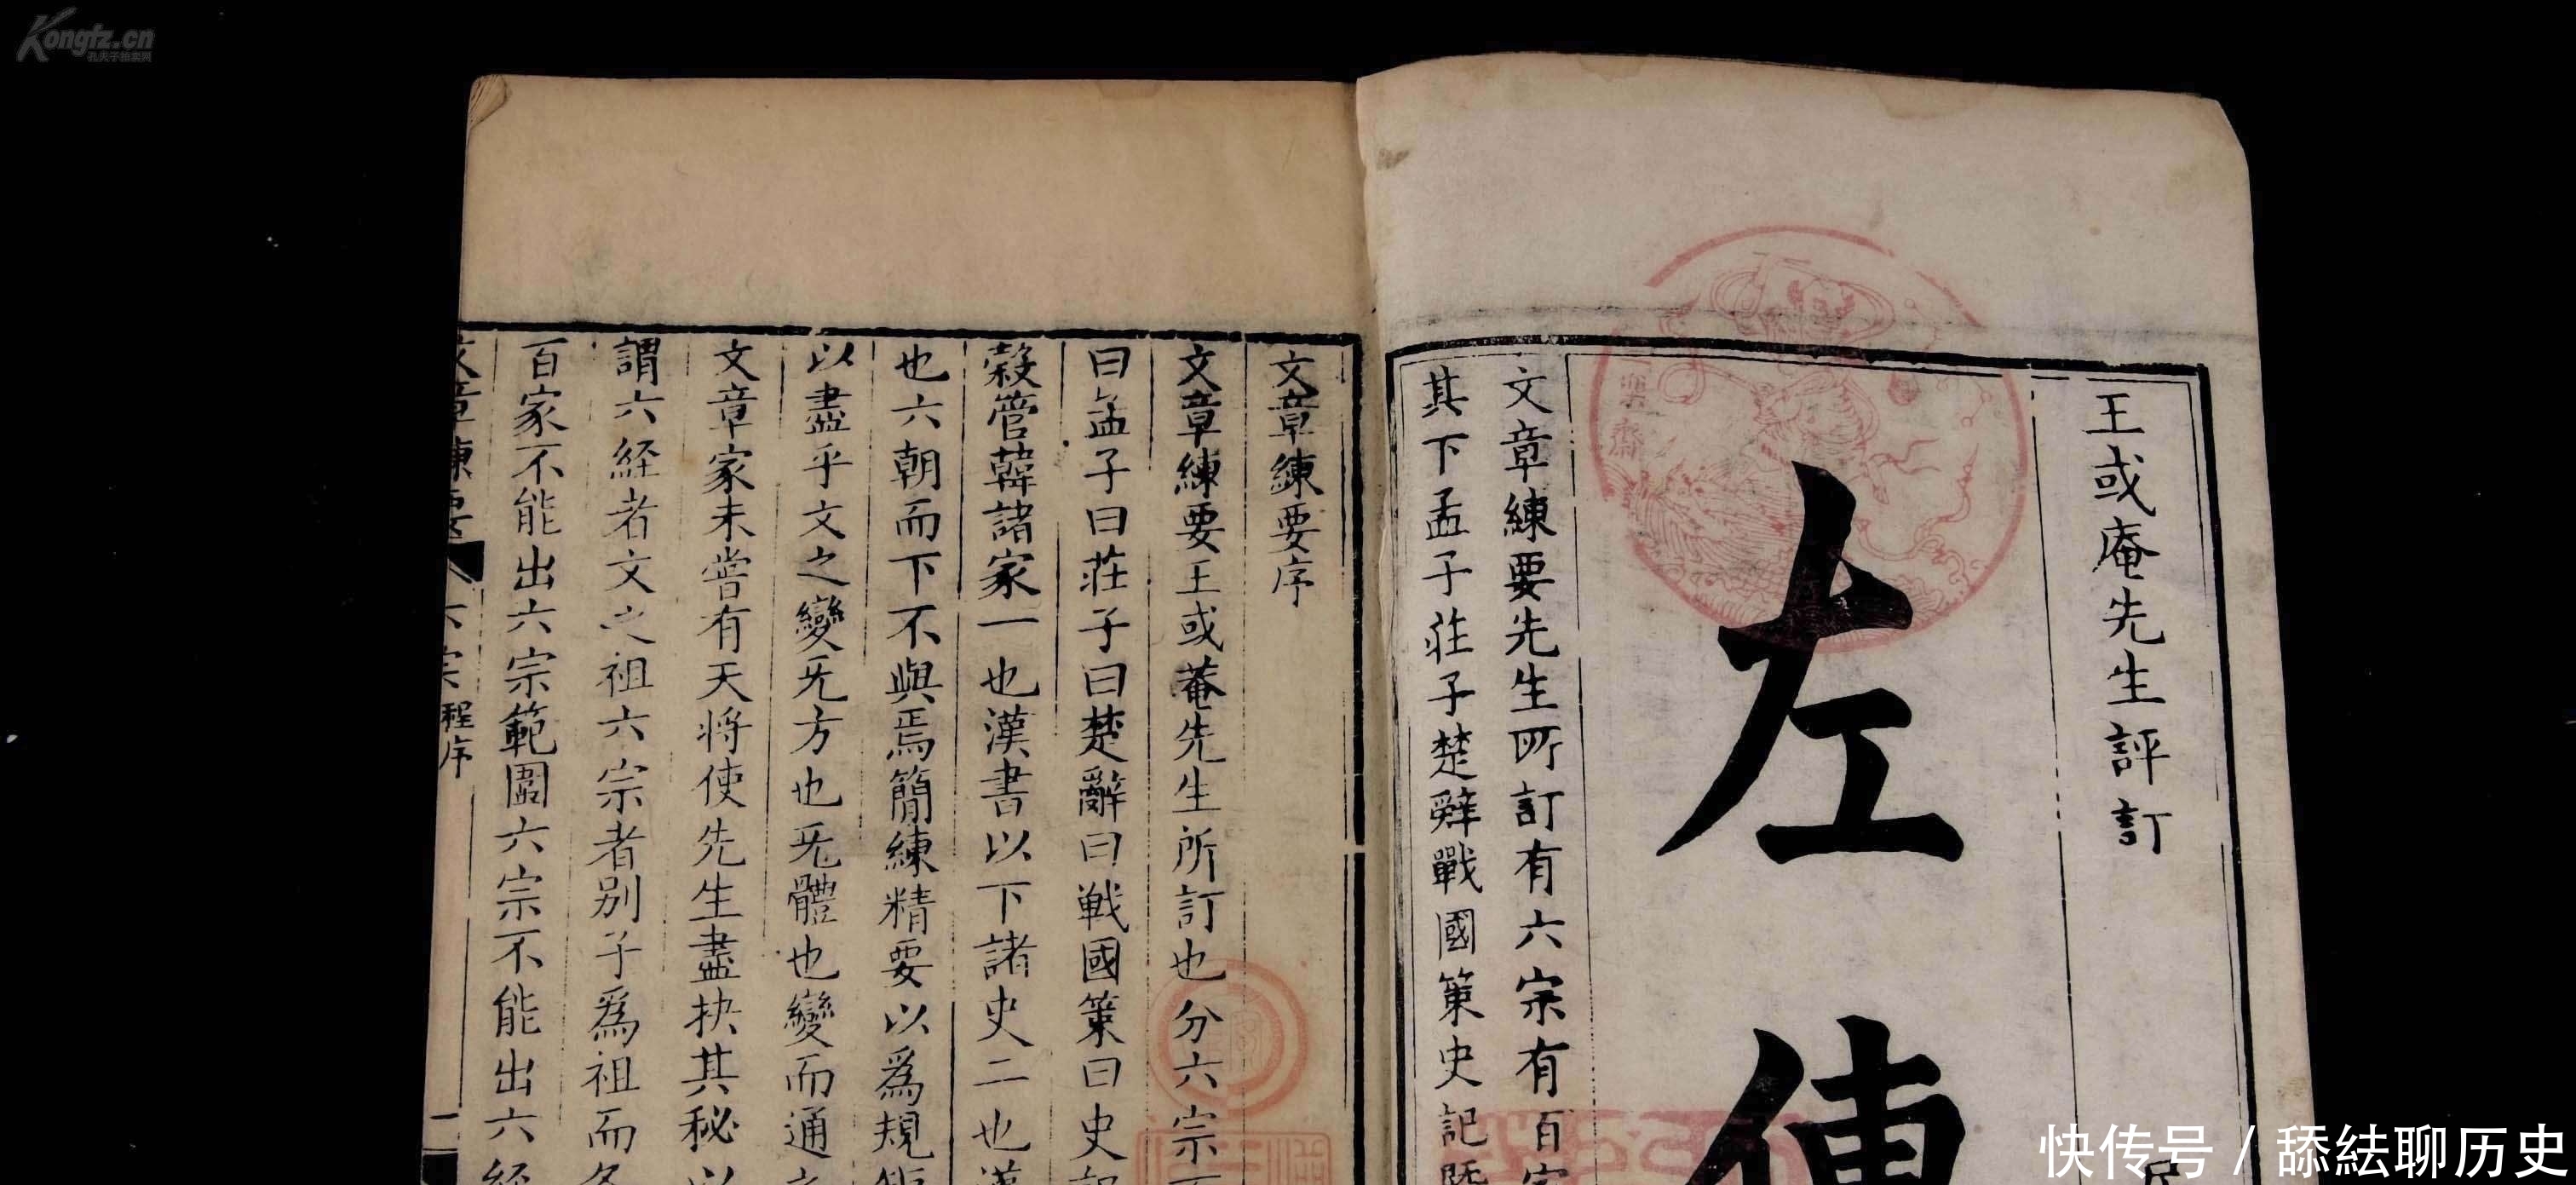 Kongfz.cn
孔夫子拍卖网
王或庵先生評訂
左傳
文章練要先生所訂有六宗有百
其下孟子莊子楚辭戰國策史記
文章練要序
文章練要王或菴先生所訂也分六宗
曰孟子曰莊子曰楚辭曰戰國策曰史
穀管韓諸家一也漢書以下諸史二也漢
也六朝而下不與焉簡練精要以爲規
以盡乎文之變旡方也旡體也變而通
文章家未嘗有天将使先生盡抉其秘以
謂六経者文之祖六宗者别子爲祖而各
百家不能出六宗範圍六宗不能出六経
文章練要 六宗 程序 一
快传号 / 舔紶聊历史